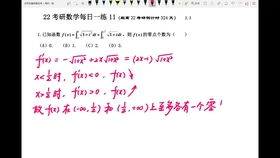 22考研数学每日一练 11 (距离22考研倒计时324天)
1.已知函数 f(x)=∫ₓ¹ √(1+t²) dt + ∫₁^{x²} √(1+t) dt，则 f(x) 的零点个数为（ ）
(A) 0. (B) 1. (C) 2. (D) 3.
f'(x) = -√(1+x²) + 2x√(1+x²) = (2x-1)√(1+x²)
x<1/2时, f'(x)<0. f(x)↘
x>1/2时, f'(x)>0. f(x)↗
故 f(x) 在 (-∞, 1/2) 和 (1/2, +∞) 上至多各有一个零